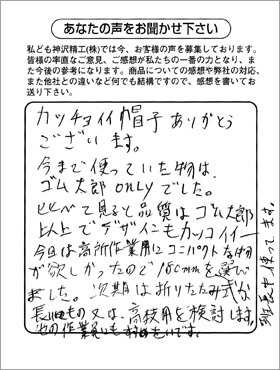 あなたの声をお聞かせ下さい
私ども神沢精工(株)では今、お客様の声を募集しております。
皆様の率直なご意見、ご感想が私たちの一番の力となり、ま
た今後の参考になります。商品についての感想や弊社の対応、
また他社との違いなど何でも結構ですので、感想を書いてお
送り下さい。
カッチョイイ帽子ありがとう
ございます。
今まで使っていた物は、
ゴム太郎onlyでした。
比べて見ると品質はゴム太郎
以上でデザインもカッコイイー
今回は高所作業用にコンパクトな物
が欲しかったので160mmを選び
ました。次期は折りたたみ式か、
長い
もの又は、高枝用を検討します。
他の作業
使ってます。